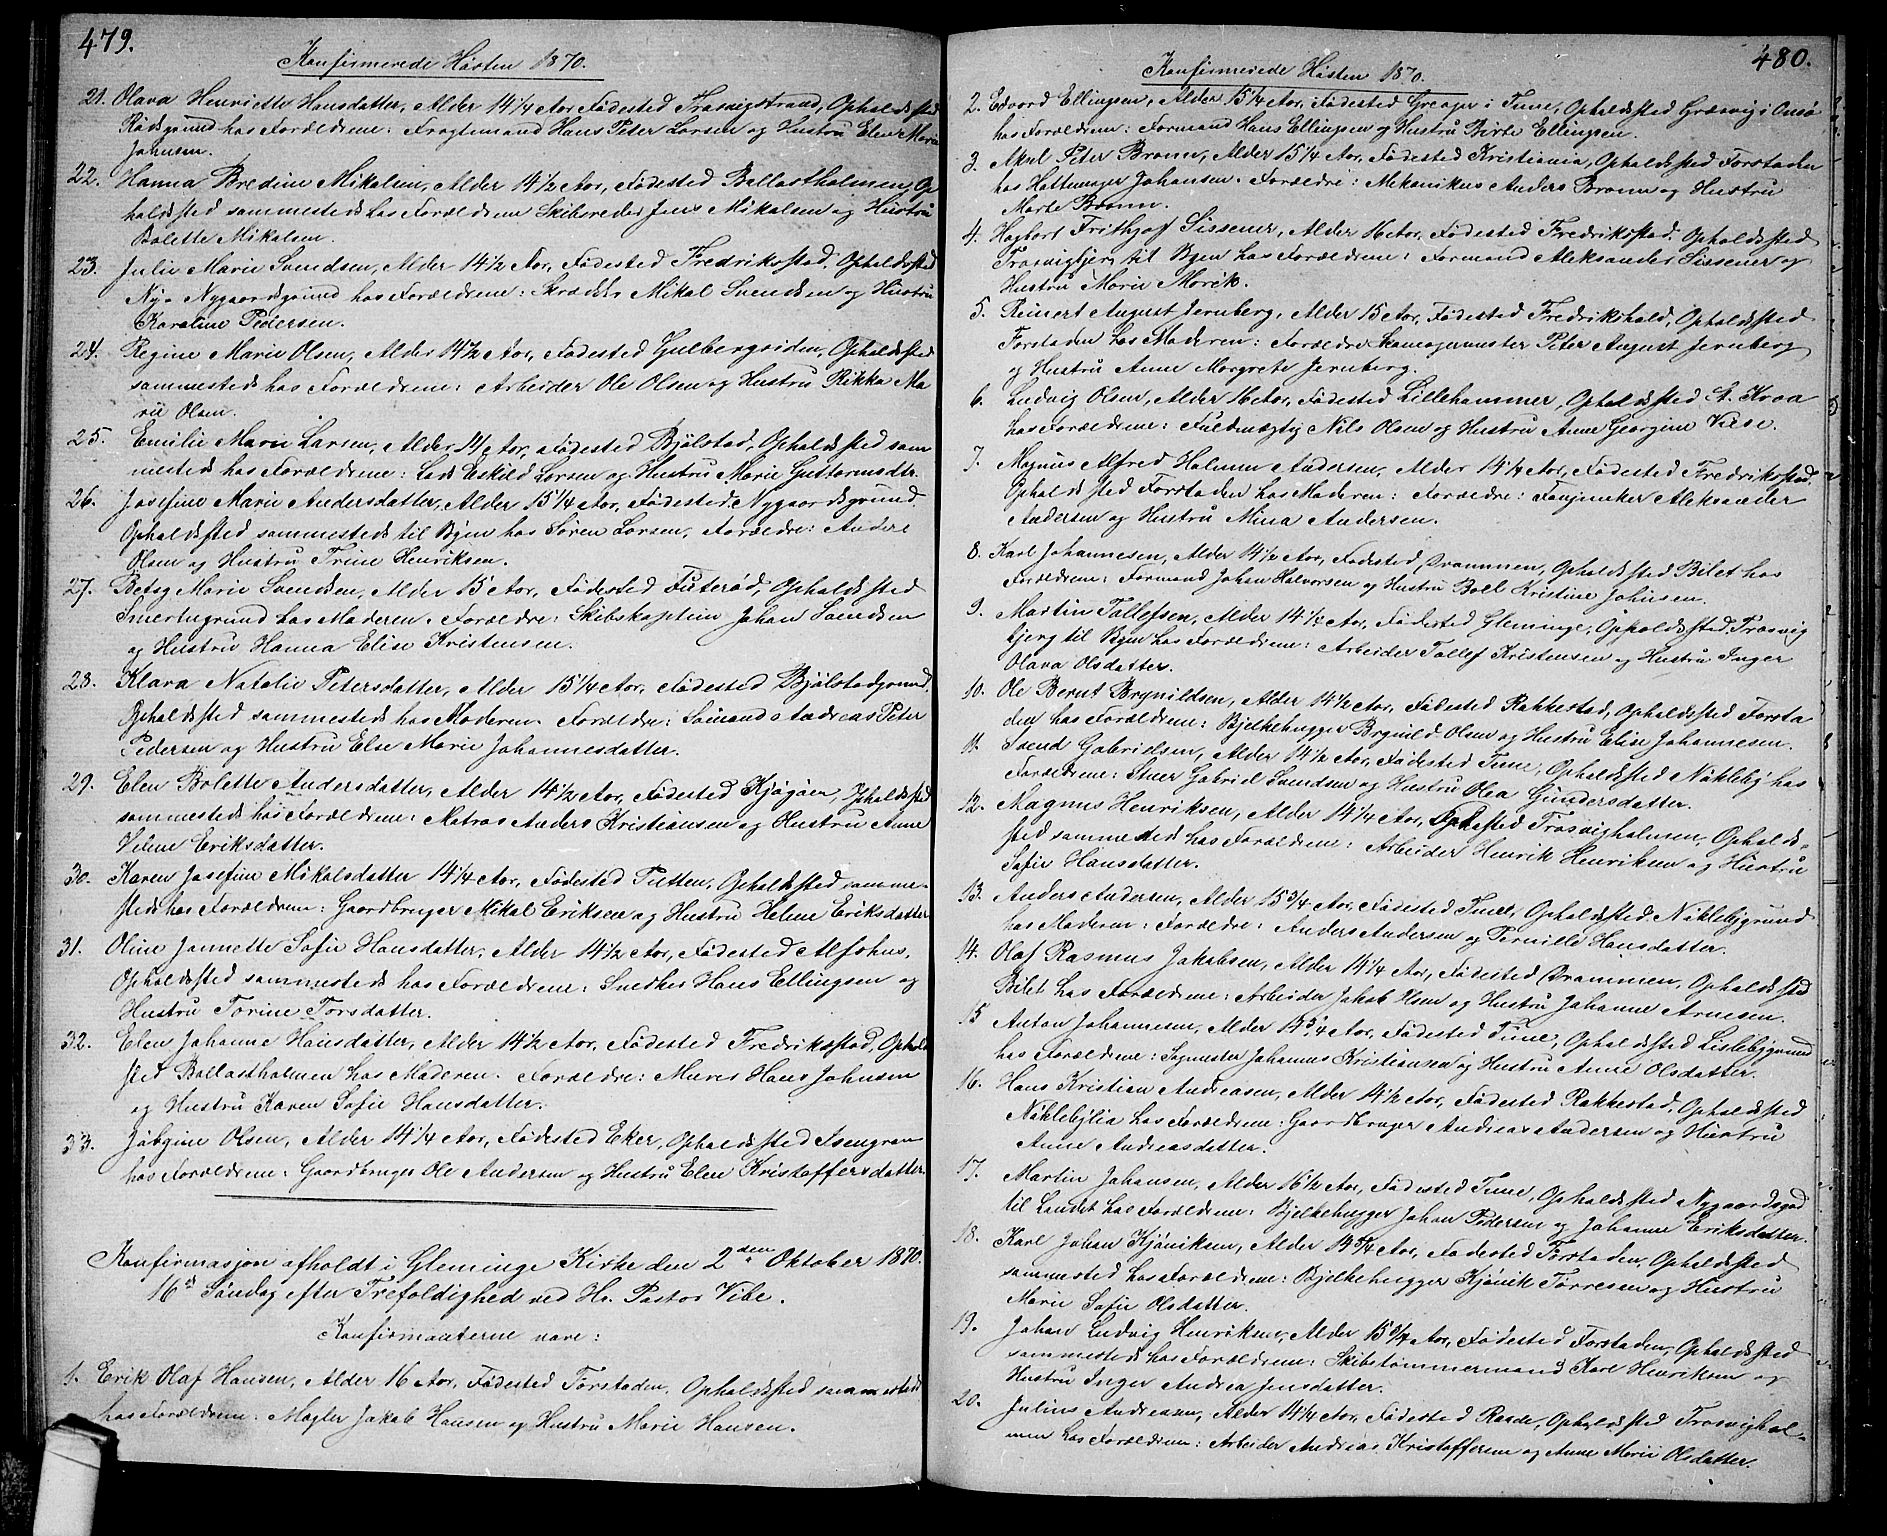 479.
Konfirmerede Hösten 1870.
21. Olava Henriette Hansdatter, Alder 14 1/4 Aar, Födested Trosvigstrand, Opholdssted
Rödsgrund hos Forældrene: Fragtemand Hans Peter Larsen og Hustru Elen Maria
Johnsen.
22. Hanna Bredine Mikalsen, Alder 14 1/2 Aar, Födested Ballastholmen, Op
holdssted sammesteds hos Forældrene Skibsreder Jens Mikalsen og Hustru
Bolette Mikalsen.
23. Julie Marie Svendsen, Alder 14 1/2 Aar, Födested Fredrikstad, Opholdssted
Nye Nygaardsgrund hos Forældrene: Skrædder Mikal Svendsen og Hustru
Karoline Pedersen.
24. Regine Marie Olsen, Alder 14 1/2 Aar, Födested Gulbergsiden, Opholdssted
sammesteds hos Forældrene: Arbeider Ole Olsen og Hustru Rikka Ma
rie Olsen.
25. Emilie Marie Larsen, Alder 14 1/2 Aar, Födested Bjölstad, Opholdssted sam
mesteds hos Forældrene: Lods Eskild Larsen og Hustru Marie Guttormsdtr.
26. Josefine Marie Andersdatter, Alder 15 1/4 Aar, Födested Nygaardsgrund,
Opholdssted sammesteds til Byen hos Sören Larsen, Forældre: Anders
Olsen og Hustru Trine Henriksen.
27. Betsy Marie Svendsen, Alder 15 Aar, Födested Futeröd, Opholdssted
Smertugrund hos Moderen. Forældre: Skibskaptein Johan Svendsen
og Hustru Hanna Elise Kristensen.
28. Klara Natalie Petersdatter, Alder 15 1/4 Aar, Födested Bjölstadgrund,
Opholdssted sammesteds hos Moderen. Forældre: Sömand Andreas Peter
Pedersen og Hustru Else Marie Johannesdatter.
29. Elen Bolette Andersdatter, Alder 14 1/2 Aar, Födested Kjögöen, Opholdssted
sammesteds hos Forældrene: Matros Anders Kristiansen og Hustru Anne
Helene Eriksdatter.
30. Karen Josefine Mikalsdatter 14 1/4 Aar, Födested Tutten, Opholdssted samme-
steds hos Forældrene: Gaardbruger Mikal Eriksen og Hustru Helene Eriksdatter
31. Oline Jannette Sofie Hansdatter, Alder 14 1/2 Aar, Födested Alfshus,
Opholdssted sammesteds hos Forældrene: Snedker Hans Ellingsen og
Hustru Torine Torsdatter.
32. Elen Johanne Hansdatter, Alder 14 1/2 Aar, Födested Fredrikstad, Ophold
sted Ballastholmen hos Moderen. Forældre: Murer Hans Johnsen
og Hustru Karen Sofie Hansdatter.
33. Jörgine Olsen, Alder 14 1/4 Aar, Födested Eker, Opholdssted Isengran
hos Forældrene: Gaardbruger Ole Andersen og Hustru Elen Kristoffersdatter.
Konfirmasjon afholdt i Gleminge Kirke den 2den Oktober 1870.
16de Söndag efter Trefoldighed ved Hr. Pastor Vibe.
Konfirmanterne vare:
1. Erik Olaf Hansen, Alder 16 Aar, Födested Forstaden, Opholdssted sammesteds
hos Forældrene: Mægler Jakob Hansen og Hustru Marie Hansen.
480.
Konfirmerede Hösten 1870.
2. Edvard Ellingsen, Alder 15 1/4 Aar, Födested Greager i Tune, Opholdssted Græsvig i Onsö
hos Forældrene: Formand Hans Ellingsen og Hustru Birte Ellingsen.
3. Aksel Peter Bronn, Alder 15 1/4 Aar, Födested Kristiania, Opholdssted Forstaden
hos Hattemager Johansen. Forældre: Mekanikus Anders Bronn og Hustru
Marte Bronn.
4. Hagbart Frithjof Sissener, Alder 16 Aar, Födested Fredrikstad, Opholdssted
Trosvigbjerg til Byen hos Forældrene: Formand Aleksander Sissener og
Hustru Marie Morek.
5. Reinert August Jernberg, Alder 15 Aar, Födested Fredrikshald, Opholdssted
Forstaden hos Moderen: Forældre Skomagermester Peter August Jernberg
og Hustru Anne Margrete Jernberg.
6. Ludvig Olsen, Alder 16 Aar, Födested Lillehammer, Opholdssted St. Kroa
hos Forældrene: Fuldmægtig Nils Olsen og Hustru Anne Georgine Viese.
7. Magnus Alfred Holmen Andersen, Alder 14 1/4 Aar, Födested Fredrikstad,
Opholdssted Forstaden hos Moderen: Forældre: Aleksander
Andersen og Hustru Mina Andersen.
8. Karl Johannesen, Alder 14 1/2 Aar, Födested Drammen, Opholdssted Bilet hos
Forældrene: Formand Johan Halvorsen og Hustru Boel Kristine Johnsen.
9. Martin Tollefsen, Alder 14 1/4 Aar, Födested Gleminge, Opholdssted Trosvig
bjerg til Byen hos Forældrene: Arbeider Tollef Kristensen og Hustru Inger
Olava Olsdatter.
10. Ole Bernt Brynildsen, Alder 14 1/2 Aar, Födested Rakkestad, Opholdssted Forsta
den hos Forældrene: Bjelkehugger Brynild Olsen og Hustru Elise Johannesen.
11. Svend Gabrielsen, Alder 14 1/2 Aar, Födested Tune, Opholdssted Nökleby hos
Forældrene: Stuer Gabriel Svendsen og Hustru Olea Gundersdatter.
12. Magnus Henriksen, Alder 14 1/4 Aar, Födested Trosvigholmen, Opholds-
sted sammested hos Forældrene: Arbeider Henrik Henriksen og Hustru
Sofie Hansdatter.
13. Anders Andersen, Alder 15 3/4 Aar, Födested Tune, Opholdssted Nöklebygrund
hos Moderen: Forældre: Anders Andersen og Pernille Hansdatter.
14. Olaf Rasmus Jakobsen, Alder 14 1/4 Aar, Födested Drammen, Opholdssted
Bilet hos Forældrene: Arbeider Jakob Olsen og Hustru Johanne Arnesen.
15 Anton Johannesen, Alder 14 3/4 Aar, Födested Tune, Opholdssted Lislebygrund
hos Forældrene: Sagmester Johannes Kristiansen og Hustru Anne Olsdatter.
16. Hans Kristian Andreasen, Alder 14 1/2 Aar, Födested Rakkestad, Opholdssted
Nöklebylia hos Forældrene: Gaardbruger Andreas Andersen og Hustru
Anne Andreasdatter.
17. Martin Johansen, Alder 16 1/2 Aar, Födested Tune, Opholdssted Nygaardsgad
til Landet hos Forældrene: Bjelkehugger Johan Pedersen og Johanne Eriksdatter.
18. Karl Johan Kjöniksen, Alder 14 3/4 Aar, Födested Forstaden, Opholdssted
sammested hos Forældrene: Bjelkehugger Kjönik Torresen og Hustru
Marie Sofie Olsdatter.
19. Johan Ludvig Henriksen, Alder 15 3/4 Aar, Födested Forstaden, Opholdssted
sammesteds hos Forældrene: Skibstömmermand Karl Henriksen og
Hustru Inger Andrea Jensdatter.
20. Julius Andreasen, Alder 14 1/4 Aar, Födested Raade, Opholdssted Trosvighol-
men hos Forældrene: Arbeider Andreas Kristoffersen og Anne Marie Olsdatter.